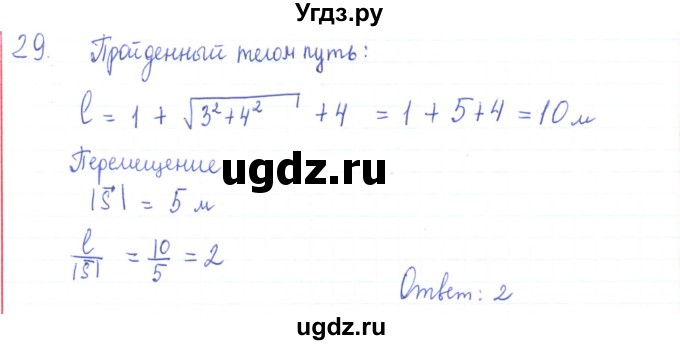 Угдз.ру
29. Пройденный телом путь:
l = 1 + √(3²+4²) + 4 = 1 + 5+4 = 10 м
Перемещение
ugdz.ru
|S⃗| = 5 м
l/|S⃗| = 10/5 = 2
Ответ: 2
ugdz.ru